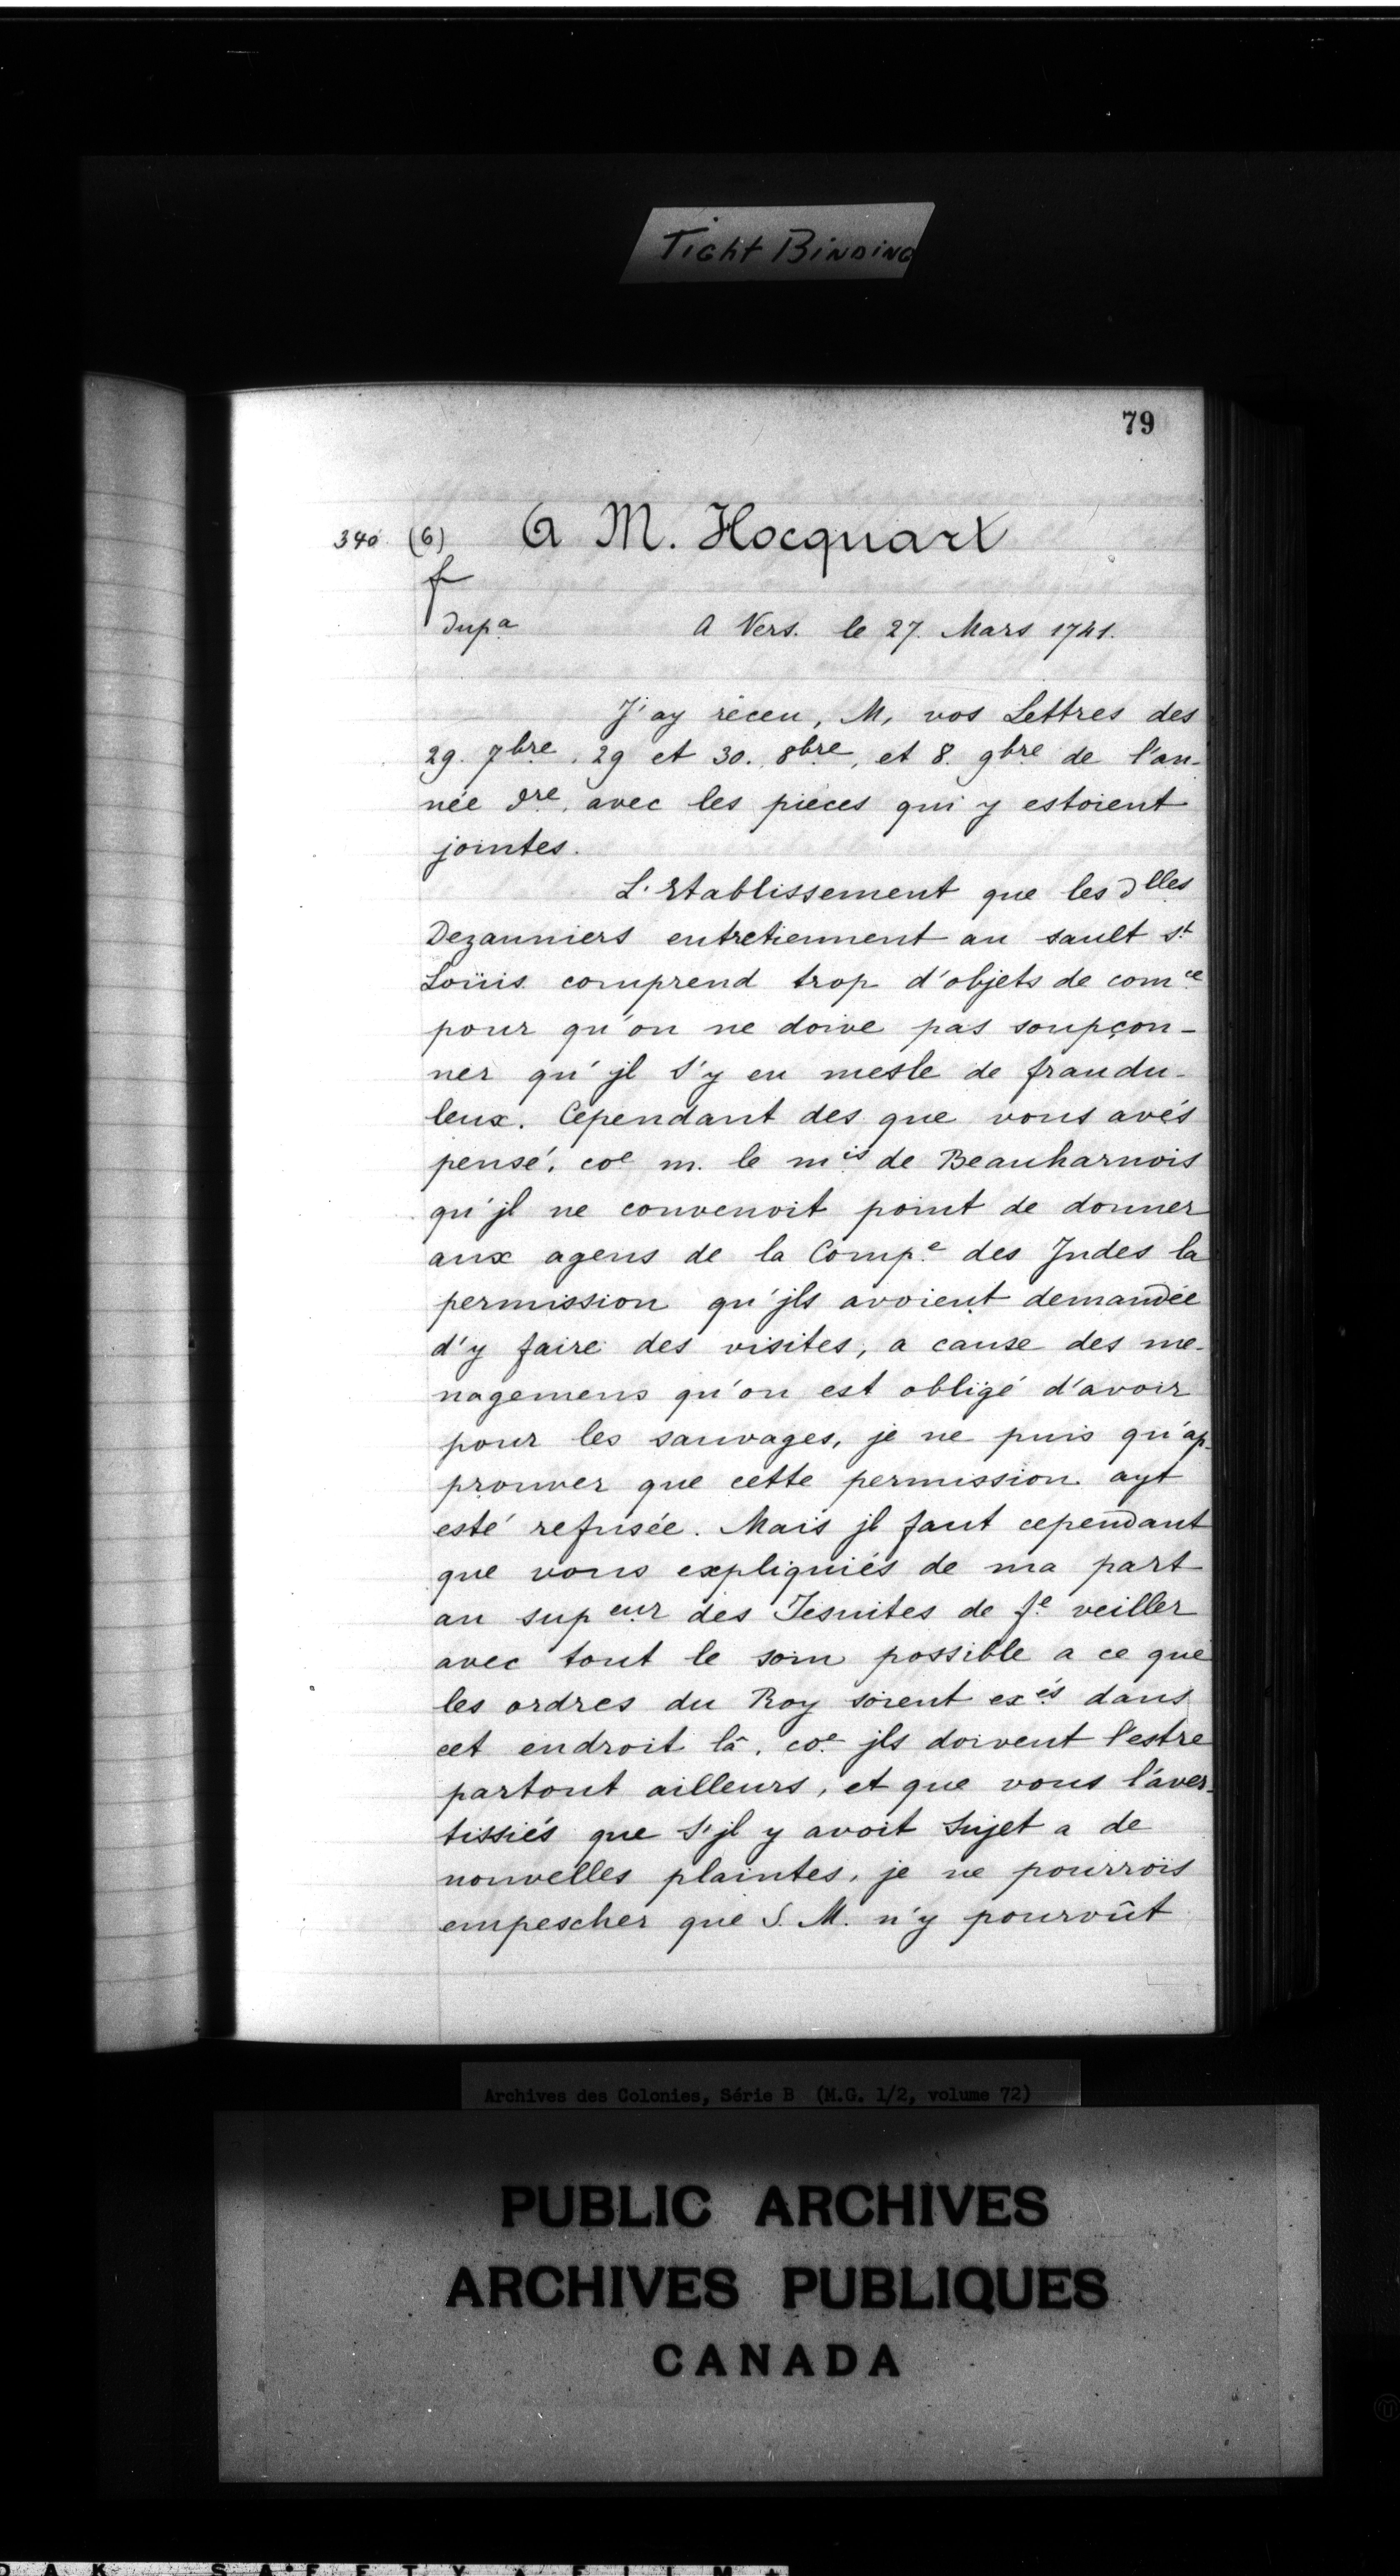 Tight Binding
79
340 (6) A M. Hocquart
f
Dupa
A Vers. le 27. Mars 1741.
J'ay receu, M, vos Lettres des
29. 7bre, 29 et 30. 8bre, et 8. 9bre de l'an-
née dre, avec les pieces qui y estoient
jointes.
L'Etablissement que les Dlles
Dezauniers entretiennent au sault st
Loüis comprend trop d'objets de comce
pour qu'on ne doive pas soupçon-
ner qu'jl s'y en mesle de fraudu-
leux. Cependant des que vous avés
pensé, coe m. le mis de Beauharnois
qu'jl ne convenoit point de donner
aux agens de la Compe des Jndes la
permission qu'jls avoient demandée
d'y faire des visites, a cause des me-
nagemens qu'on est obligé d'avoir
pour les sauvages, je ne puis qu'ap-
prouver que cette permission ayt
esté refusée. Mais jl faut cependant
que vous expliquiés de ma part
au supeur des Jesuites de fe veiller
avec tout le soin possible a ce que
les ordres du Roy soient exés dans
cet endroit là, coe jls doivent l'estre
partout ailleurs, et que vous l'aver-
tissiés que s'jl y avoit sujet a de
nouvelles plaintes, je ne pourrois
empescher que S. M. n'y pourvût
Archives des Colonies, Série B (M.G. 1/2, volume 72)
PUBLIC ARCHIVES
ARCHIVES PUBLIQUES
CANADA
DAK SAFETY FILM